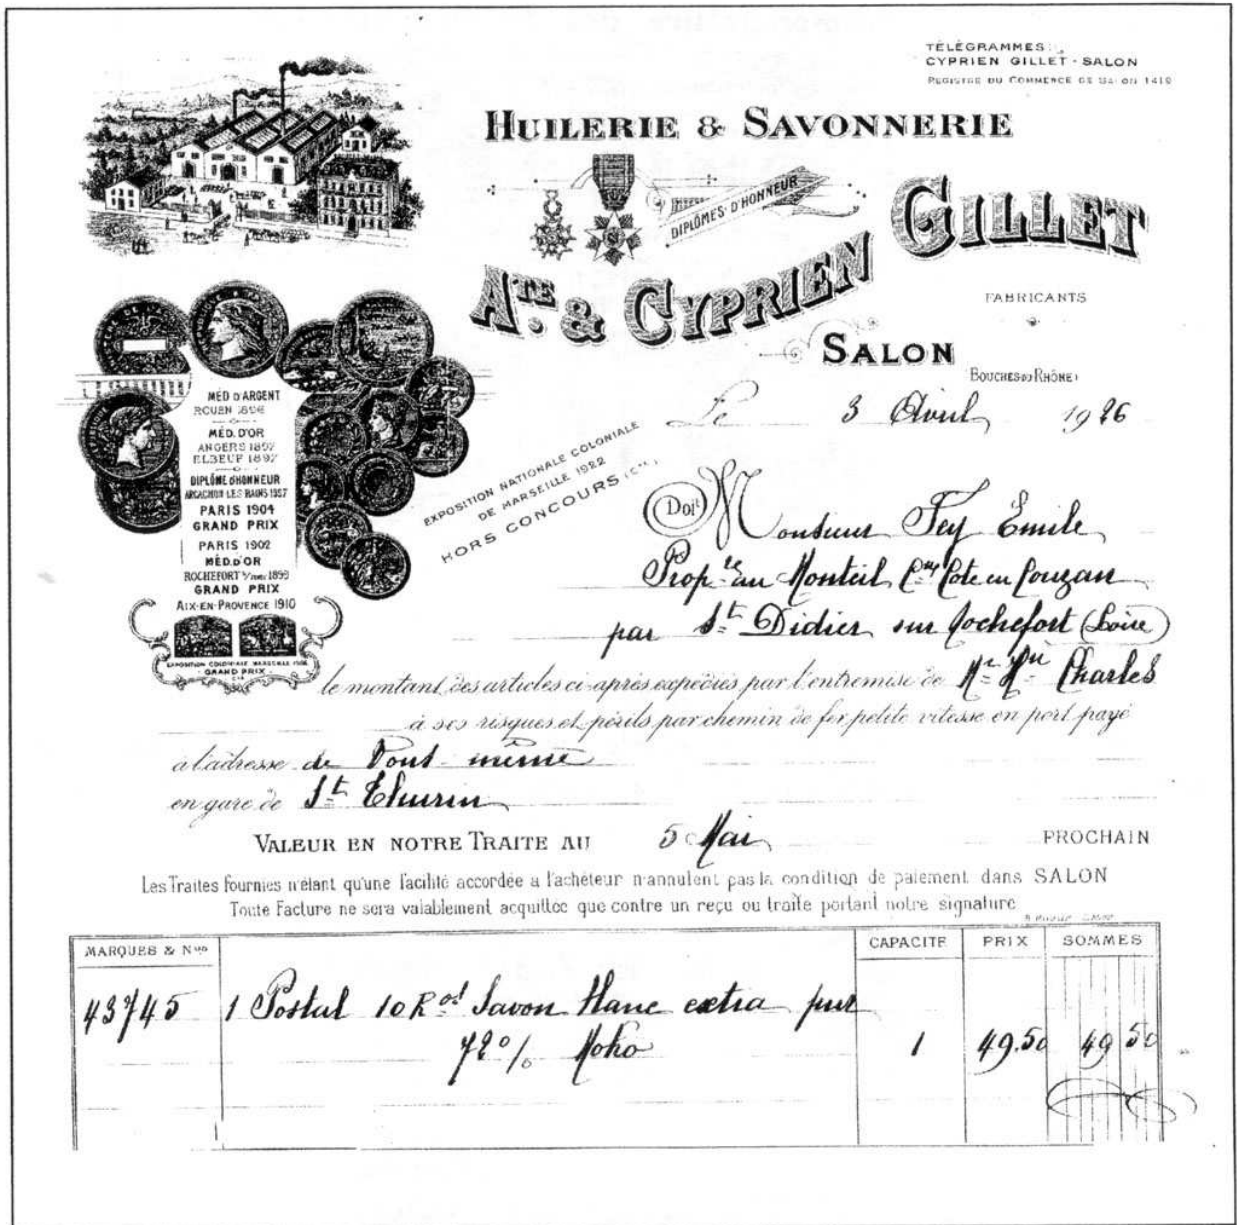 TÉLÉGRAMMES:
CYPRIEN GILLET - SALON
REGISTRE DU COMMERCE DE SALON 1419
HUILERIE & SAVONNERIE
DIPLÔMES D'HONNEUR
ATE. & CYPRIEN GILLET
FABRICANTS
SALON
(BOUCHES DU RHÔNE)
Le 3 Avril 1926
MÉD D'ARGENT
ROUEN 1896
MÉD. D'OR
ANGERS 1897
ELBEUF 1897
DIPLÔME D'HONNEUR
ARCACHON LES BAINS 1897
PARIS 1904
GRAND PRIX
PARIS 1902
MÉD. D'OR
ROCHEFORT S/MER 1899
GRAND PRIX
AIX-EN-PROVENCE 1910
EXPOSITION COLONIALE MARSEILLE 1906
GRAND PRIX
EXPOSITION NATIONALE COLONIALE
DE MARSEILLE 1922
HORS CONCOURS
Doit Monsieur Fey Émile
Prop.re au Monteil Cne Cote en Couzan
par St Didier sur Rochefort (Loire)
le montant des articles ci-après expédiés par l'entremise de Charles
à ses risques et périls par chemin de fer petite vitesse en port payé
à l'adresse de Vous-même
en gare de St Thurin
VALEUR EN NOTRE TRAITE AU 5 Mai PROCHAIN
Les Traites fournies n'étant qu'une facilité accordée a l'acheteur n'annulent pas la condition de paiement dans SALON
Toute Facture ne sera valablement acquittée que contre un reçu ou traite portant notre signature
MARQUES & Nos CAPACITE PRIX SOMMES
43745 1 Postal 10 Kos Savon blanc extra pur
72% Moko 1 49.50 49 50